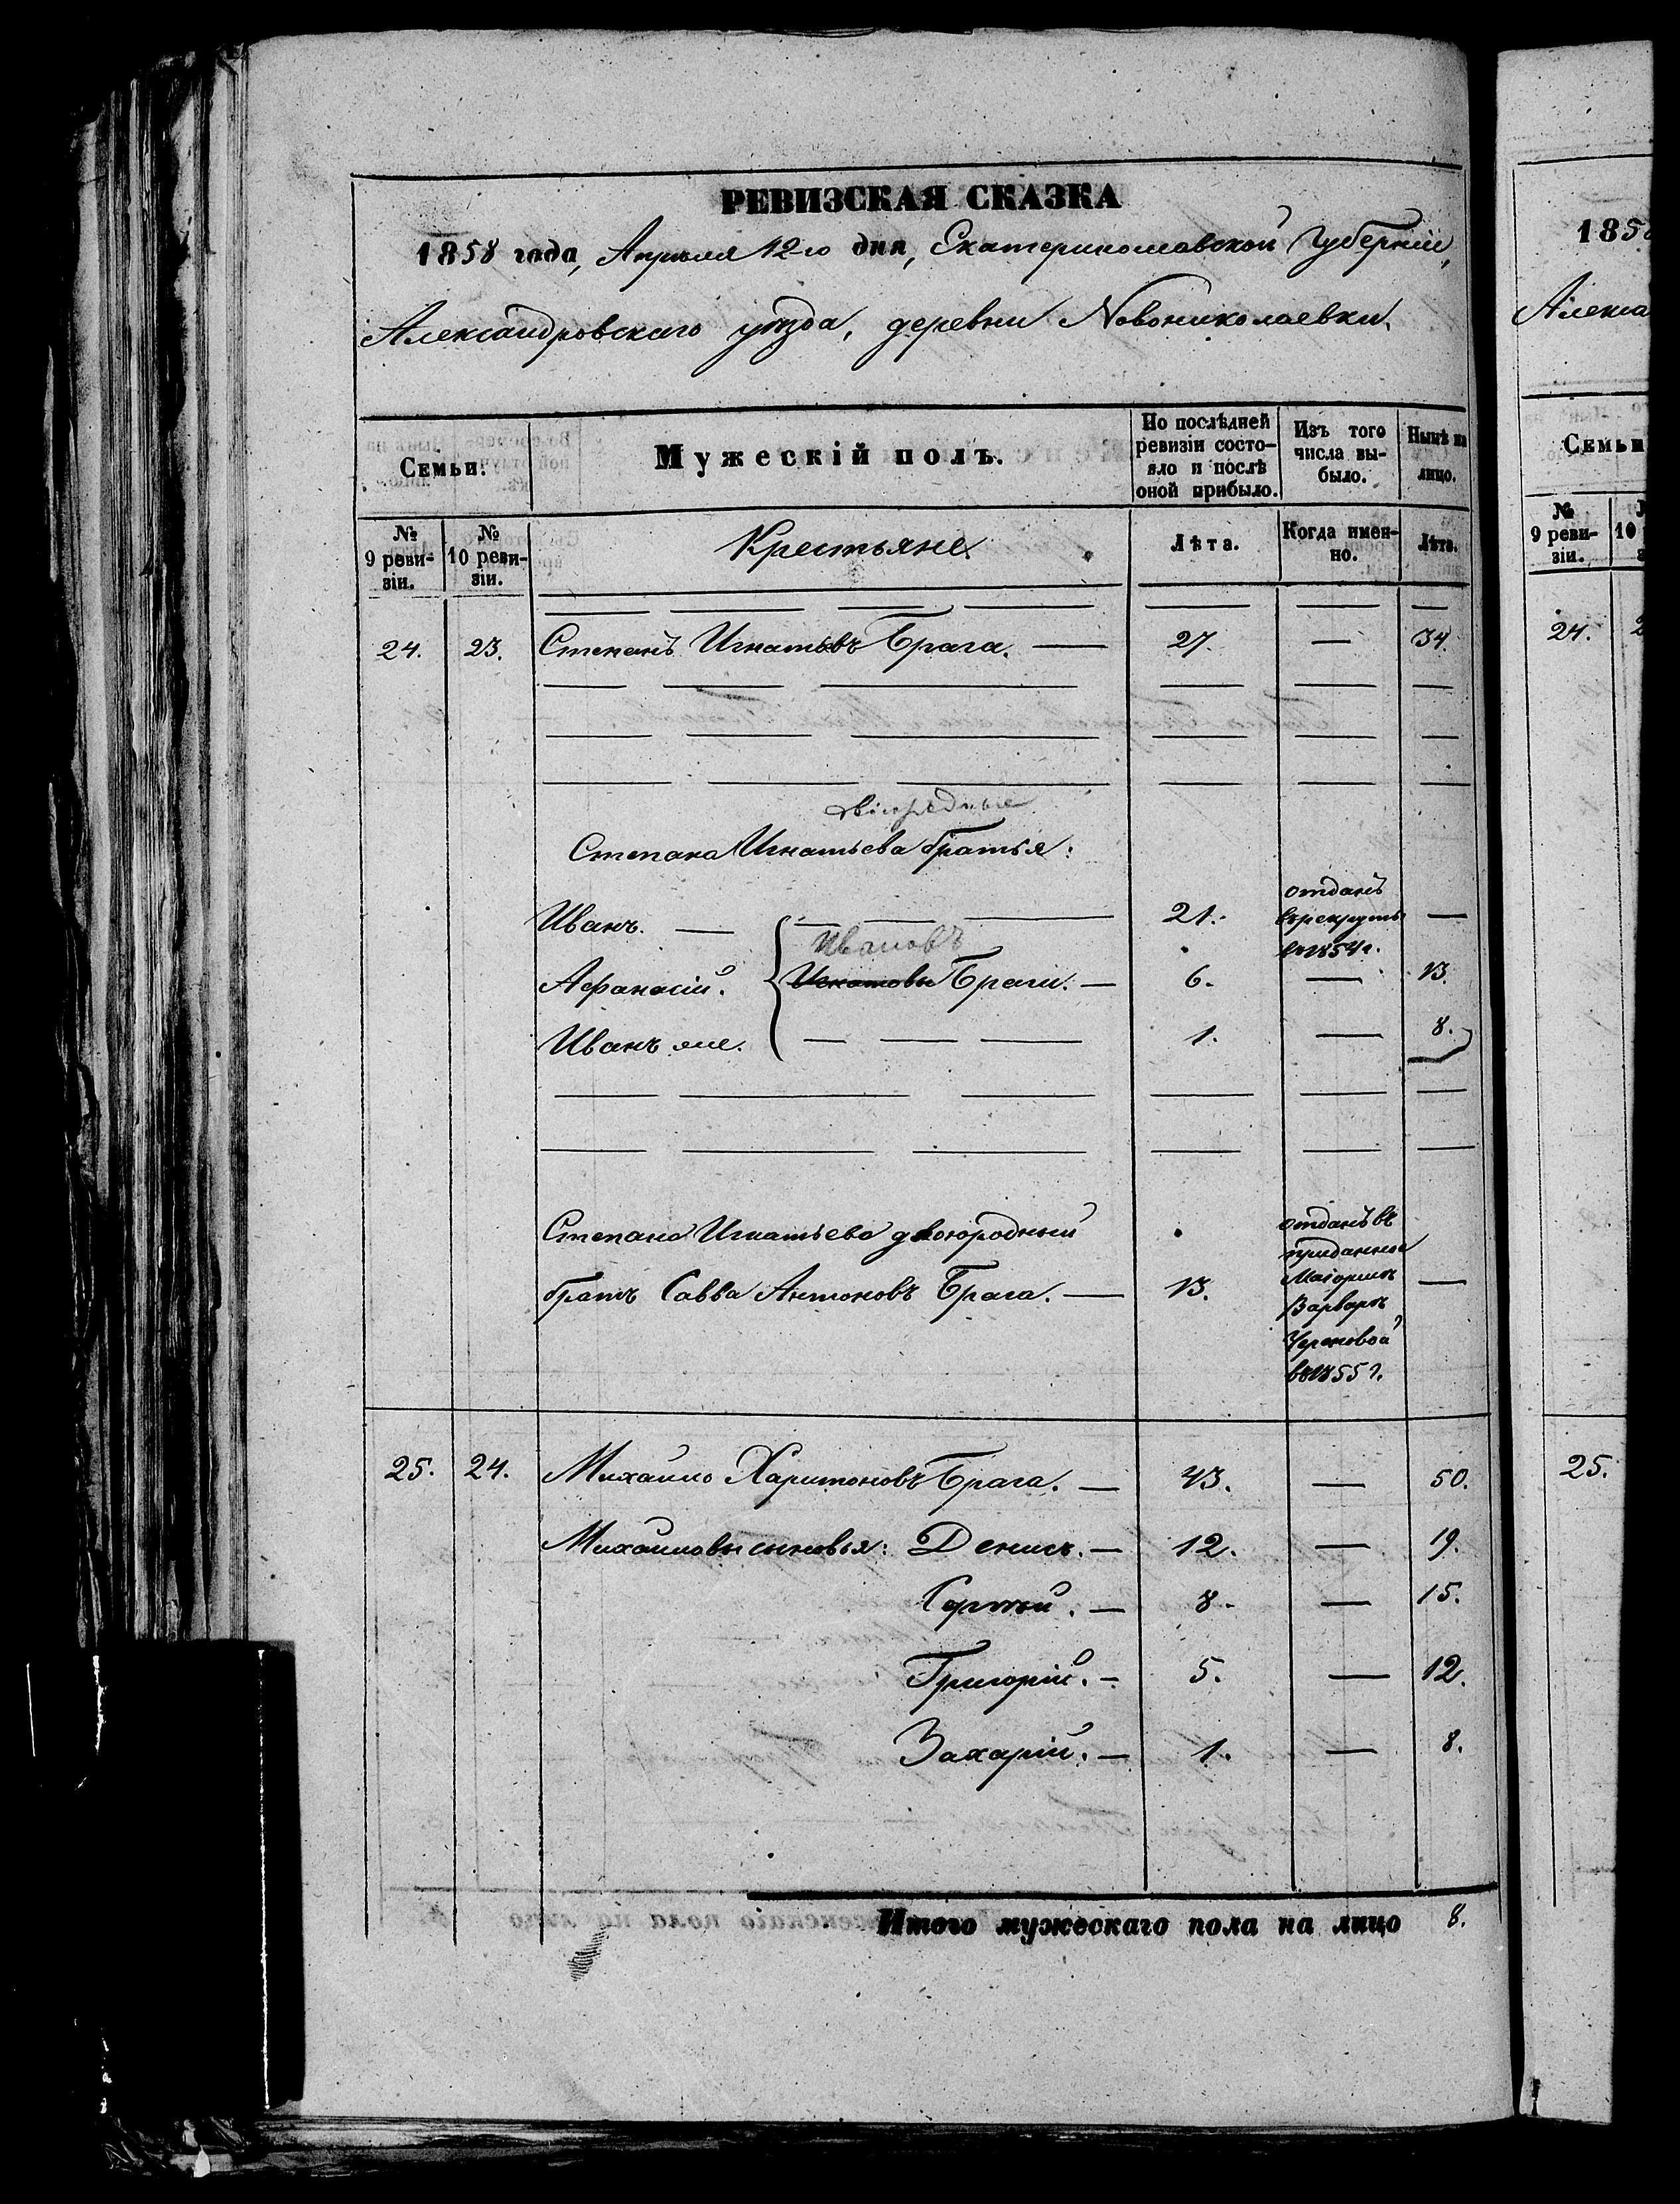 РЕВИЗСКАЯ СКАЗКА
1858 года, Апреля 12-го дня, Екатеринославской Губернии,
Александровского уезда, деревни Новониколаевки.
Семьи.
Мужескій полъ.
По послѣдней ревизіи состо-
яло и послѣ
оной прибыло.
Изъ того
числа вы-
было.
Нынѣ на
лицо.
№
9 реви-
зіи.
№
10 реви-
зіи.
Крестьяне.
Лѣта.
Когда имен-
но.
Лѣта.
24. 23. Степанъ Игнатьевъ Брага. — 27. — 34.
двоюродные
Степана Игнатьева братья:
Иванъ. — 21. отданъ въ рекруты въ 1854 г. —
Ивановъ
Афанасій. Игнатовы Браги. — 6. — 13.
Иванъ же. 1. — 8.
Степана Игнатьева двоюродный
братъ Савва Антоновъ Брага. — 13. отданъ въ приданное Маіоршѣ Варварѣ въ 1855 г. —
25. 24. Михайло Харитоновъ Брага. — 43. — 50.
Михайловы сыновья: Денисъ. — 12. — 19.
Сергѣй. — 8. — 15.
Григорій. — 5. — 12.
Захарій. — 1. — 8.
Итого мужескаго пола на лицо 8.
185
Алекса
Семьи
№
9 реви-
зіи.
10
24.
25.